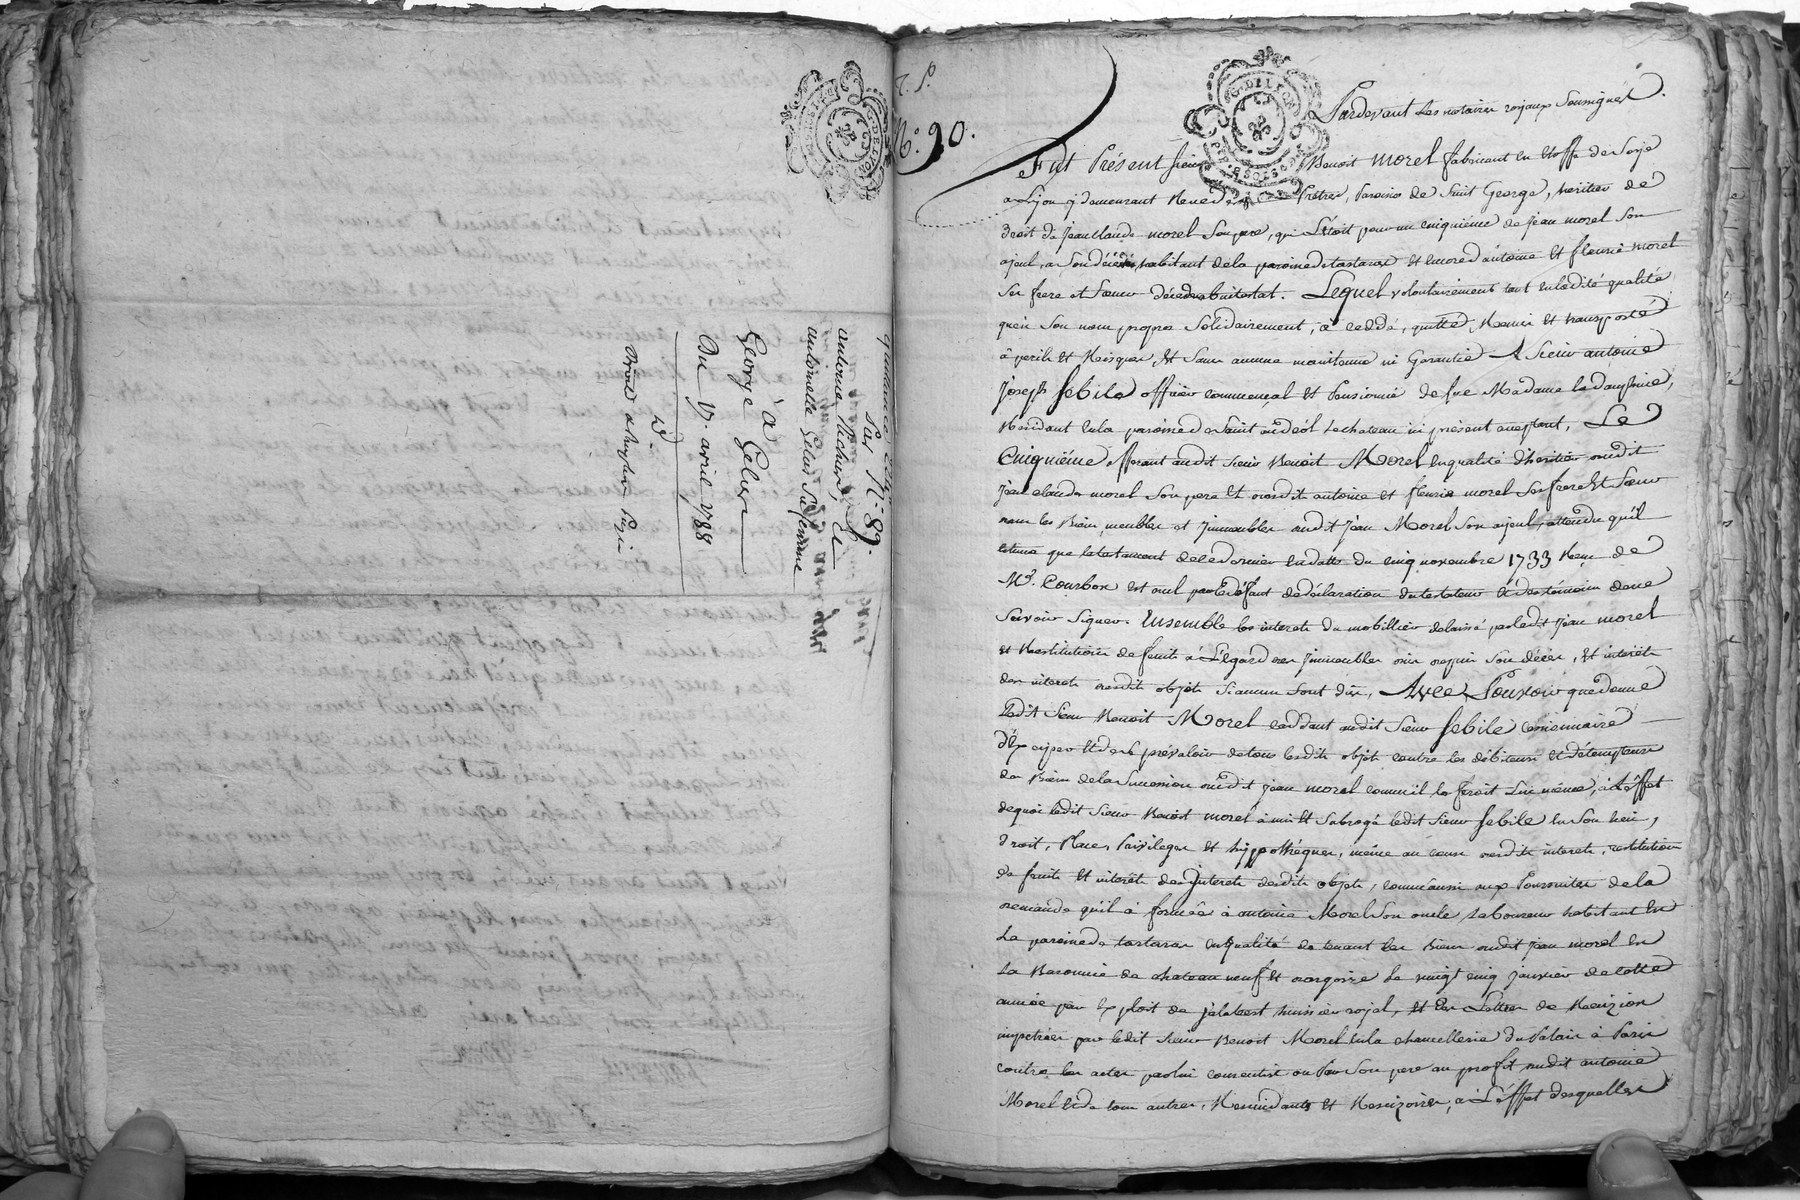 quittance cédée
Par N° 89.
antoine vichard, et
antoinette Gelas Sa femme
à
George Gelas
Du 7. avril 1788
G.DE LYON
T. P.
N° 90.
G.DE LYON
Pardevant Les notaires royaux Soussignés.
Fut Présent Sieur Benoit Morel fabricant en étoffe de Soye
a Lyon y demeurant Rue des Prêtres, Paroisse de Saint George, héritier de
droit de Jean Claude morel Son pere, qui L'étoit pour un cinquième de Jean morel Son
ajeul, a Son décès habitant de la paroisse de tartaras et encore d'antoine et fleurie morel
Ses frere et Sœur décédés ab intestat. Lequel volontairement tant en ladite qualité
qu'en Son nom propre Solidairement, à cédé, quitté, Remis et transporté
à perils et Risques, et Sans aucune maintenue ni Garantie A Sieur antoine
Joseph Sebile officier commençal et Pensionné de feue Madame la dauphine,
Résidant en la paroisse de Saint andéol le chateau ici présent acceptant, Le
Cinquième afferant audit Sieur Benoit Morel en qualité d'heritier dudit
Jean claude morel Son pere et desdits antoine et fleurie morel Ses frere et Sœur
dans les Biens meubles et Immeubles dudit Jean Morel Son ajeul, attendu qu'il
estime que le testament de ce dernier en datte du cinq novembre 1733 Reçu de
Me. Courbon est nul par le défaut de déclaration du testateur et des témoins de ne
Savoir Signer. Ensemble les interets du mobillier delaissé par ledit Jean morel
et Restitution de fruits à L'égard des Immeubles depuis Son décès, et interêts
des interets desdits objets Si aucuns Sont dus, Avec Pouvoir que donne
Ledit Sieur Benoit Morel cedant audit Sieur Sebile cessionnaire
d'Exciper et de Se prévaloir de tous lesdits objets contre les débiteurs et détempteurs
des Biens de la Succession dudit Jean morel comme il le feroit Lui même, à L'éffet
de quoi ledit Sieur Benoit morel à mis et Subrogé ledit Sieur Sebile en Son lieu,
droit, Place, Privileges et hyppothéques, même au cours desdits interets, restitution
de fruits et interêts des Interets desdits objets, comme aussi aux Poursuites de la
demande qu'il à formée à antoine Morel Son oncle Laboureur habitant en
La paroisse de tartaras en qualité de tenant les Biens dudit Jean morel en
La Baronnie de chateau neuf et dargoire le vingt cinq janvier de cette
année par Exploit de jalabert huissier royal, et des Lettres de Recizion
impetrées par ledit Sieur Benoit Morel en la chancellerie du Palais à Paris
contre les actes par lui consentis ou par Son pere au profit dudit antoine
Morel et de tous autres, Rescindants et Rescizoires, à L'éffet desquelles